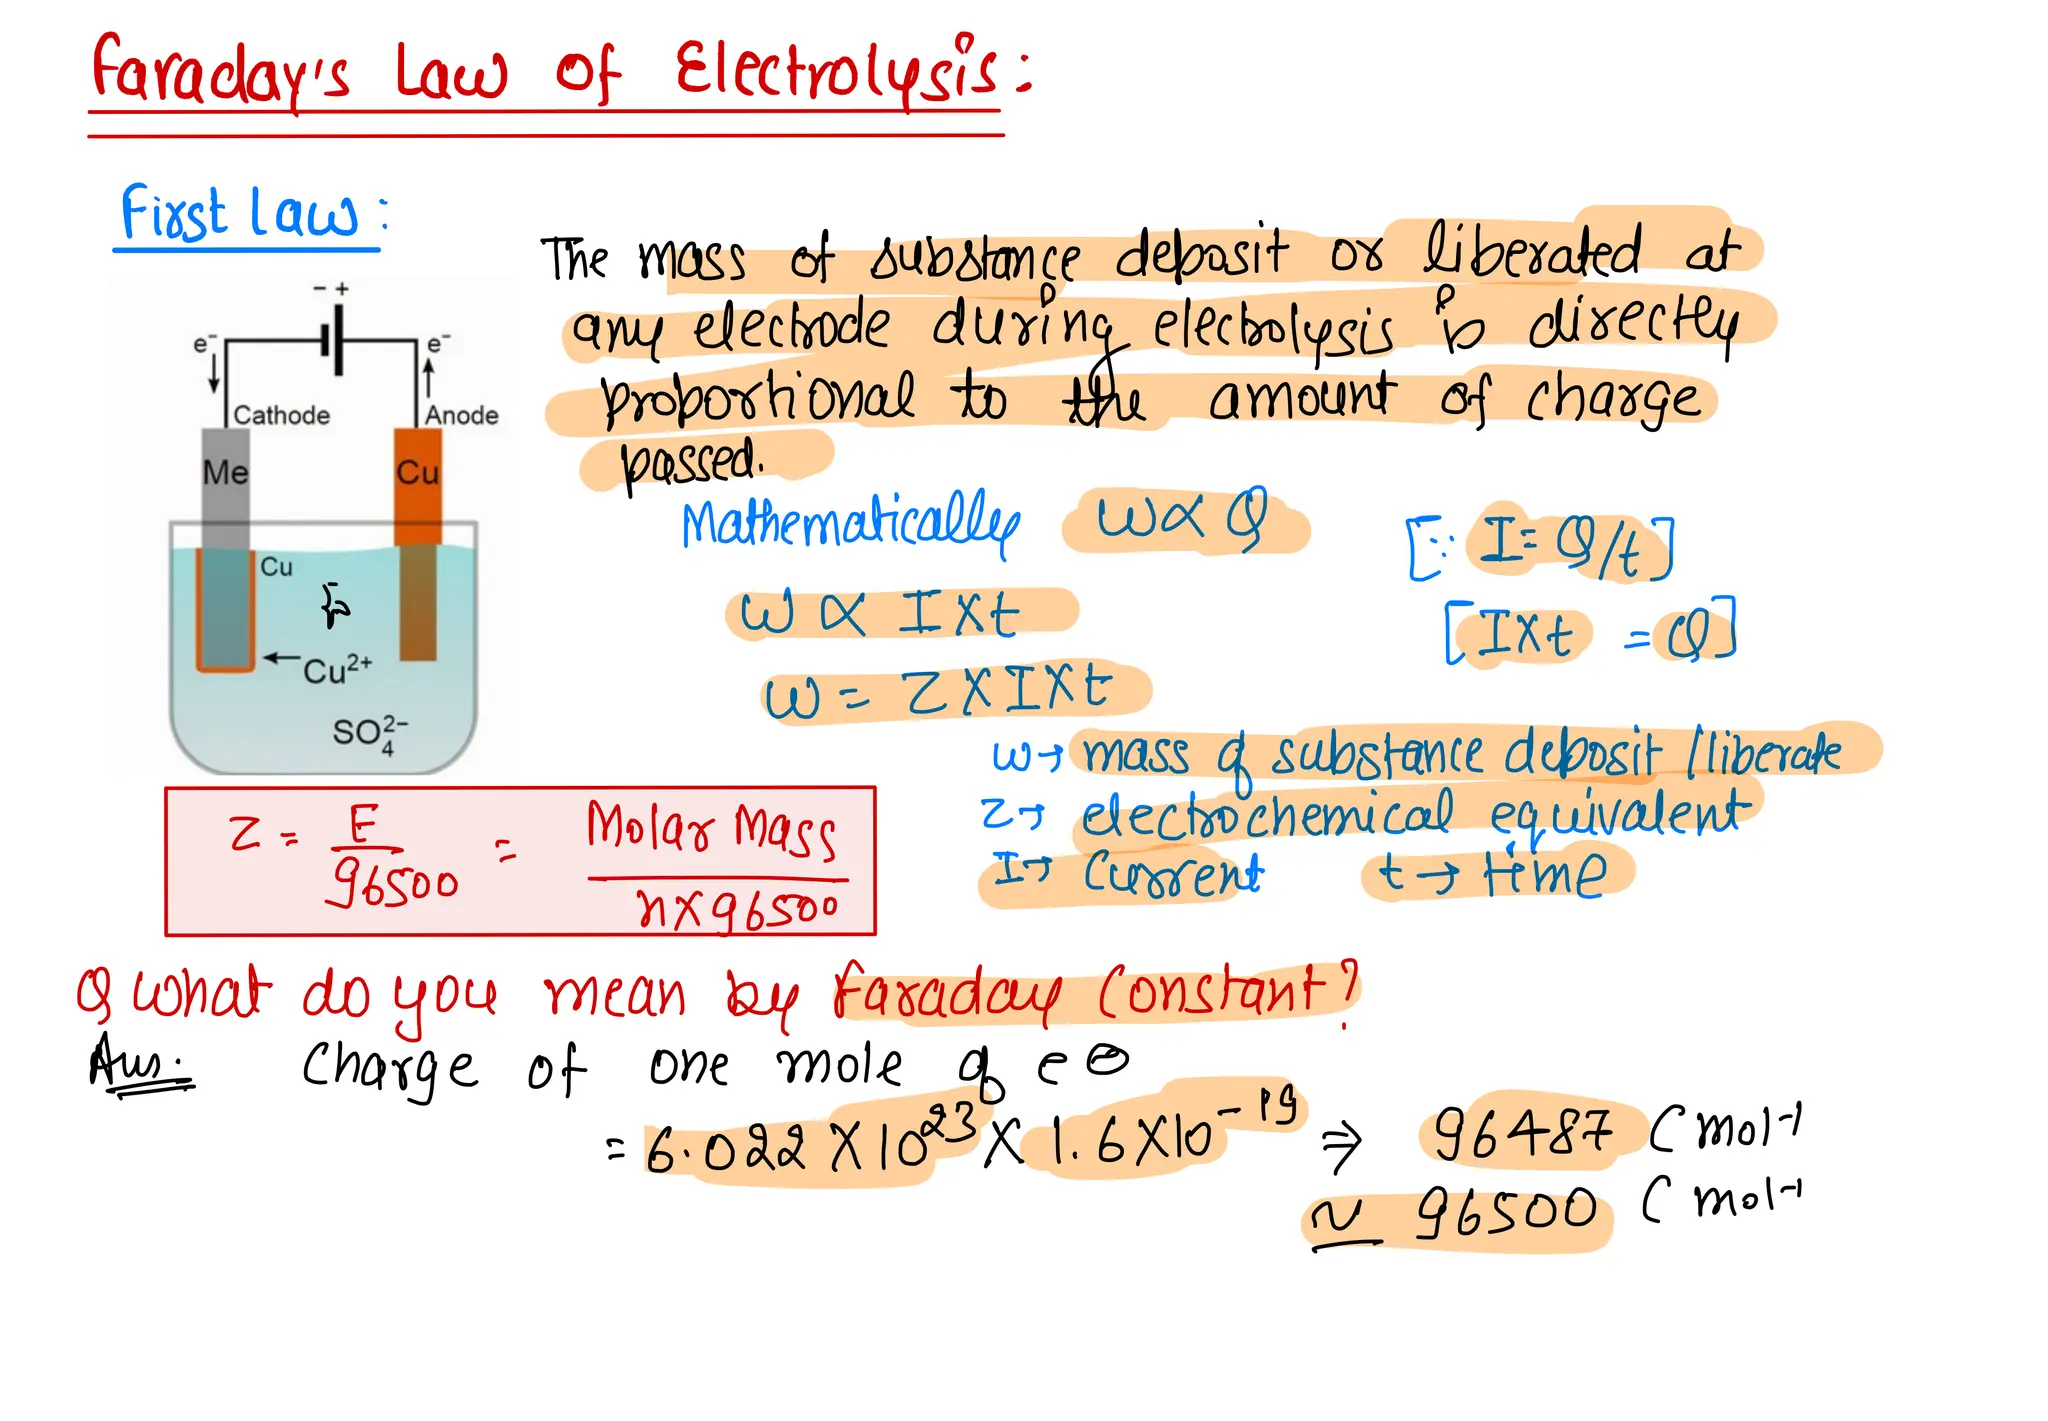 Faraday's Law of Electrolysis:
First law:
The mass of substance deposit or liberated at
any electrode during electrolysis is directly
proportional to the amount of charge
passed.
- +
e⁻ e⁻
Cathode Anode
Me Cu
Cu
Cu²⁺
SO₄²⁻
Mathematically W ∝ Q [∵ I = Q/t]
W ∝ I×t [I×t = Q]
W = Z×I×t
W→ mass of substance deposit / liberate
Z→ electrochemical equivalent
I→ Current t → time
Z = E/96500 = Molar Mass/n×96500
Q What do you mean by Faraday Constant?
Ans. Charge of one mole of e⊖
= 6.022×10²³ × 1.6×10⁻¹⁹ ⇒ 96487 C mol⁻¹
≃ 96500 C mol⁻¹